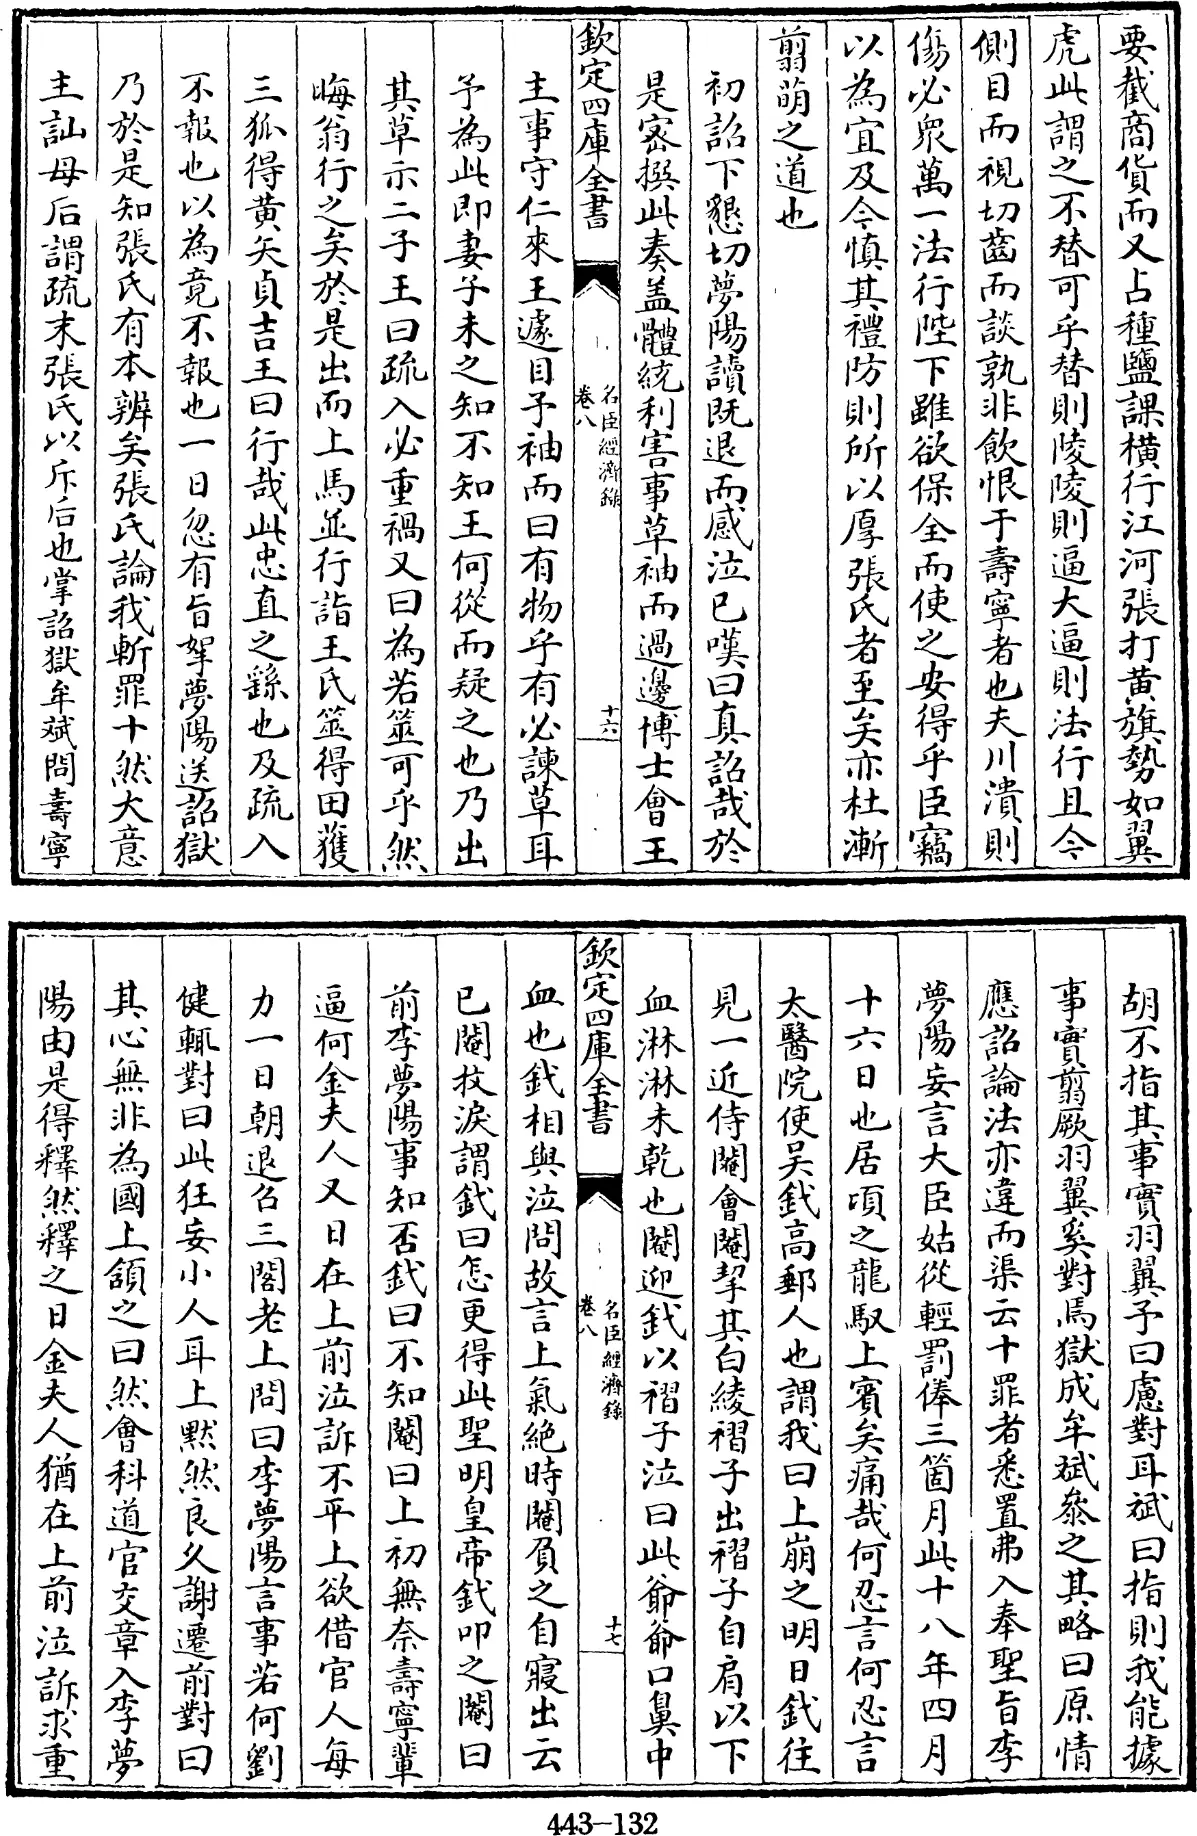 要截商貨而又占種鹽課横行江河張打黄旗勢如翼
虎此謂之不替可乎替則陵陵則逼大逼則法行且今
側目而視切齒而談孰非飲恨于壽寧者也夫川潰則
傷必衆萬一法行陛下雖欲保全而使之安得乎臣竊
以為宜及今慎其禮防則所以厚張氏者至矣亦杜漸
翦萌之道也
初詔下懇切夢陽讀既退而感泣已嘆曰真詔哉於
是密撰此奏盖體統利害事草袖而過邊博士會王
欽定四庫全書
名臣經濟錄
卷八
十六
主事守仁來王遽目予袖而曰有物乎有必諫草耳
予為此即妻子未之知不知王何從而疑之也乃出
其草示二子王曰疏入必重禍又曰為若筮可乎然
晦翁行之矣於是出而上馬並行詣王氏筮得田獲
三狐得黄矢貞吉王曰行哉此忠直之繇也及疏入
不報也以為竟不報也一日忽有旨拏夢陽送詔獄
乃於是知張氏有本辨矣張氏論我斬罪十然大意
主訕母后謂疏末張氏以斥后也掌詔獄牟斌問壽寧
胡不指其事實羽翼予曰慮對耳斌曰指則我能據
事實翦厥羽翼奚對焉獄成牟斌叅之其略曰原情
應詔論法亦違而渠云十罪者悉置弗入奉聖旨李
夢陽妄言大臣姑從輕罰俸三箇月此十八年四月
十六日也居頃之龍馭上賓矣痛哉何忍言何忍言
太醫院使吴鉽高郵人也謂我曰上崩之明日鉽往
見一近侍閹會閹挈其白綾褶子出褶子自肩以下
血淋淋未乾也閹迎鉽以褶子泣曰此爺爺口鼻中
欽定四庫全書
名臣經濟錄
卷八
十七
血也鉽相與泣問故言上氣絶時閹負之自寢出云
已閹抆淚謂鉽曰怎更得此聖明皇帝鉽叩之閹曰
前李夢陽事知否鉽曰不知閹曰上初無奈壽寧輩
逼何金夫人又日在上前泣訴不平上欲借官人每
力一日朝退召三閣老上問曰李夢陽言事若何劉
健輒對曰此狂妄小人耳上默然良久謝遷前對曰
其心無非為國上頷之曰然會科道官交章入李夢
陽由是得釋然釋之日金夫人猶在上前泣訴求重
443-132